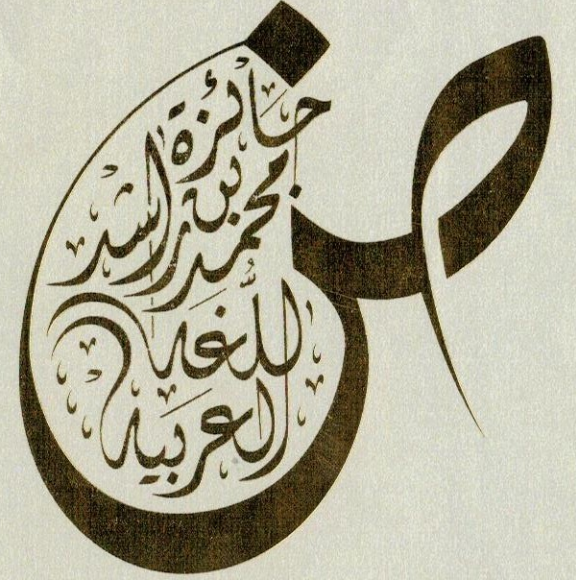 ض
جائزة
محمد بن راشد
للّغة
العربية